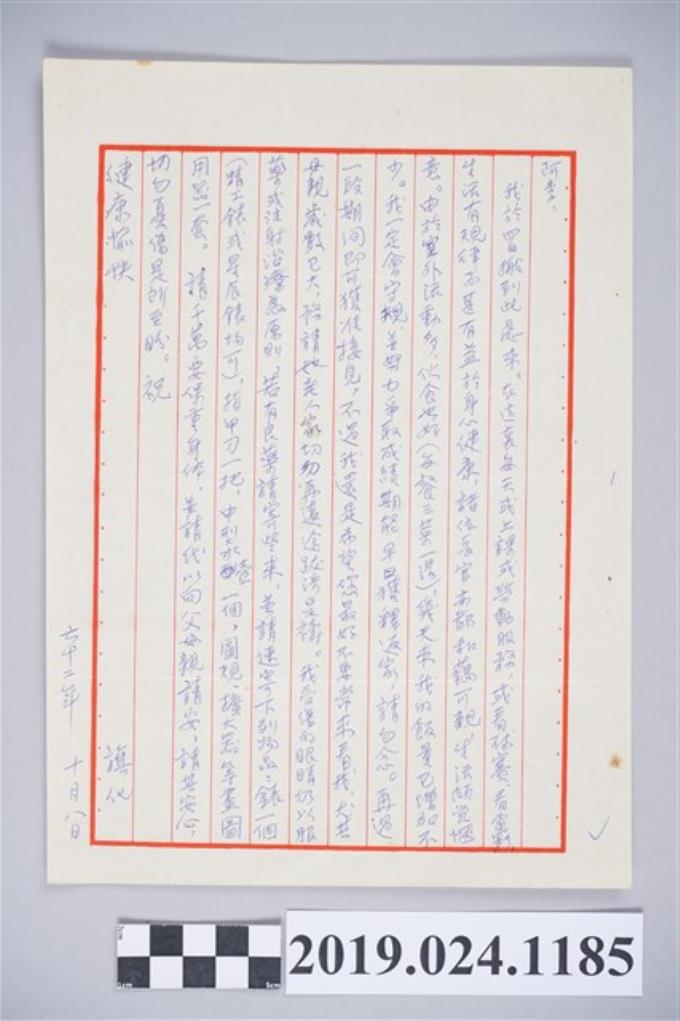 阿李、
我於四日搬到此處來。在這裏每天或上課或勞動服務，或看球賽、看電影，
生活有規律而甚有益於身心健康，諸位長官亦都和藹可親，生活頗覺愜
意。由於室外流動多，伙食也好（每餐三菜一湯），幾天來我的飯量已增加不
少。我一定會守規、並努力爭取成績期能早日獲釋返家，請勿念。再過
一段期間即可獲准接見，不過我還是希望您最好不要常來看我，尤其
母親歲數已大，務請她老人家切勿再遠途跋涉是禱。我受傷的眼睛仍以服
藥或注射治療為原則，若有良藥請寄些來，並請速寄下列物品：錶一個
（精工錶或星辰錶均可），指甲刀一把，中型水壺一個，圓規、擴大器等畫圖
用器一套。 請千萬要保重身体，並請代以向父母親請安，請其安心，
切勿憂傷是所至盼。祝
健康愉快
旗化
六十二年 十月八日
2019.024.1185
5cm